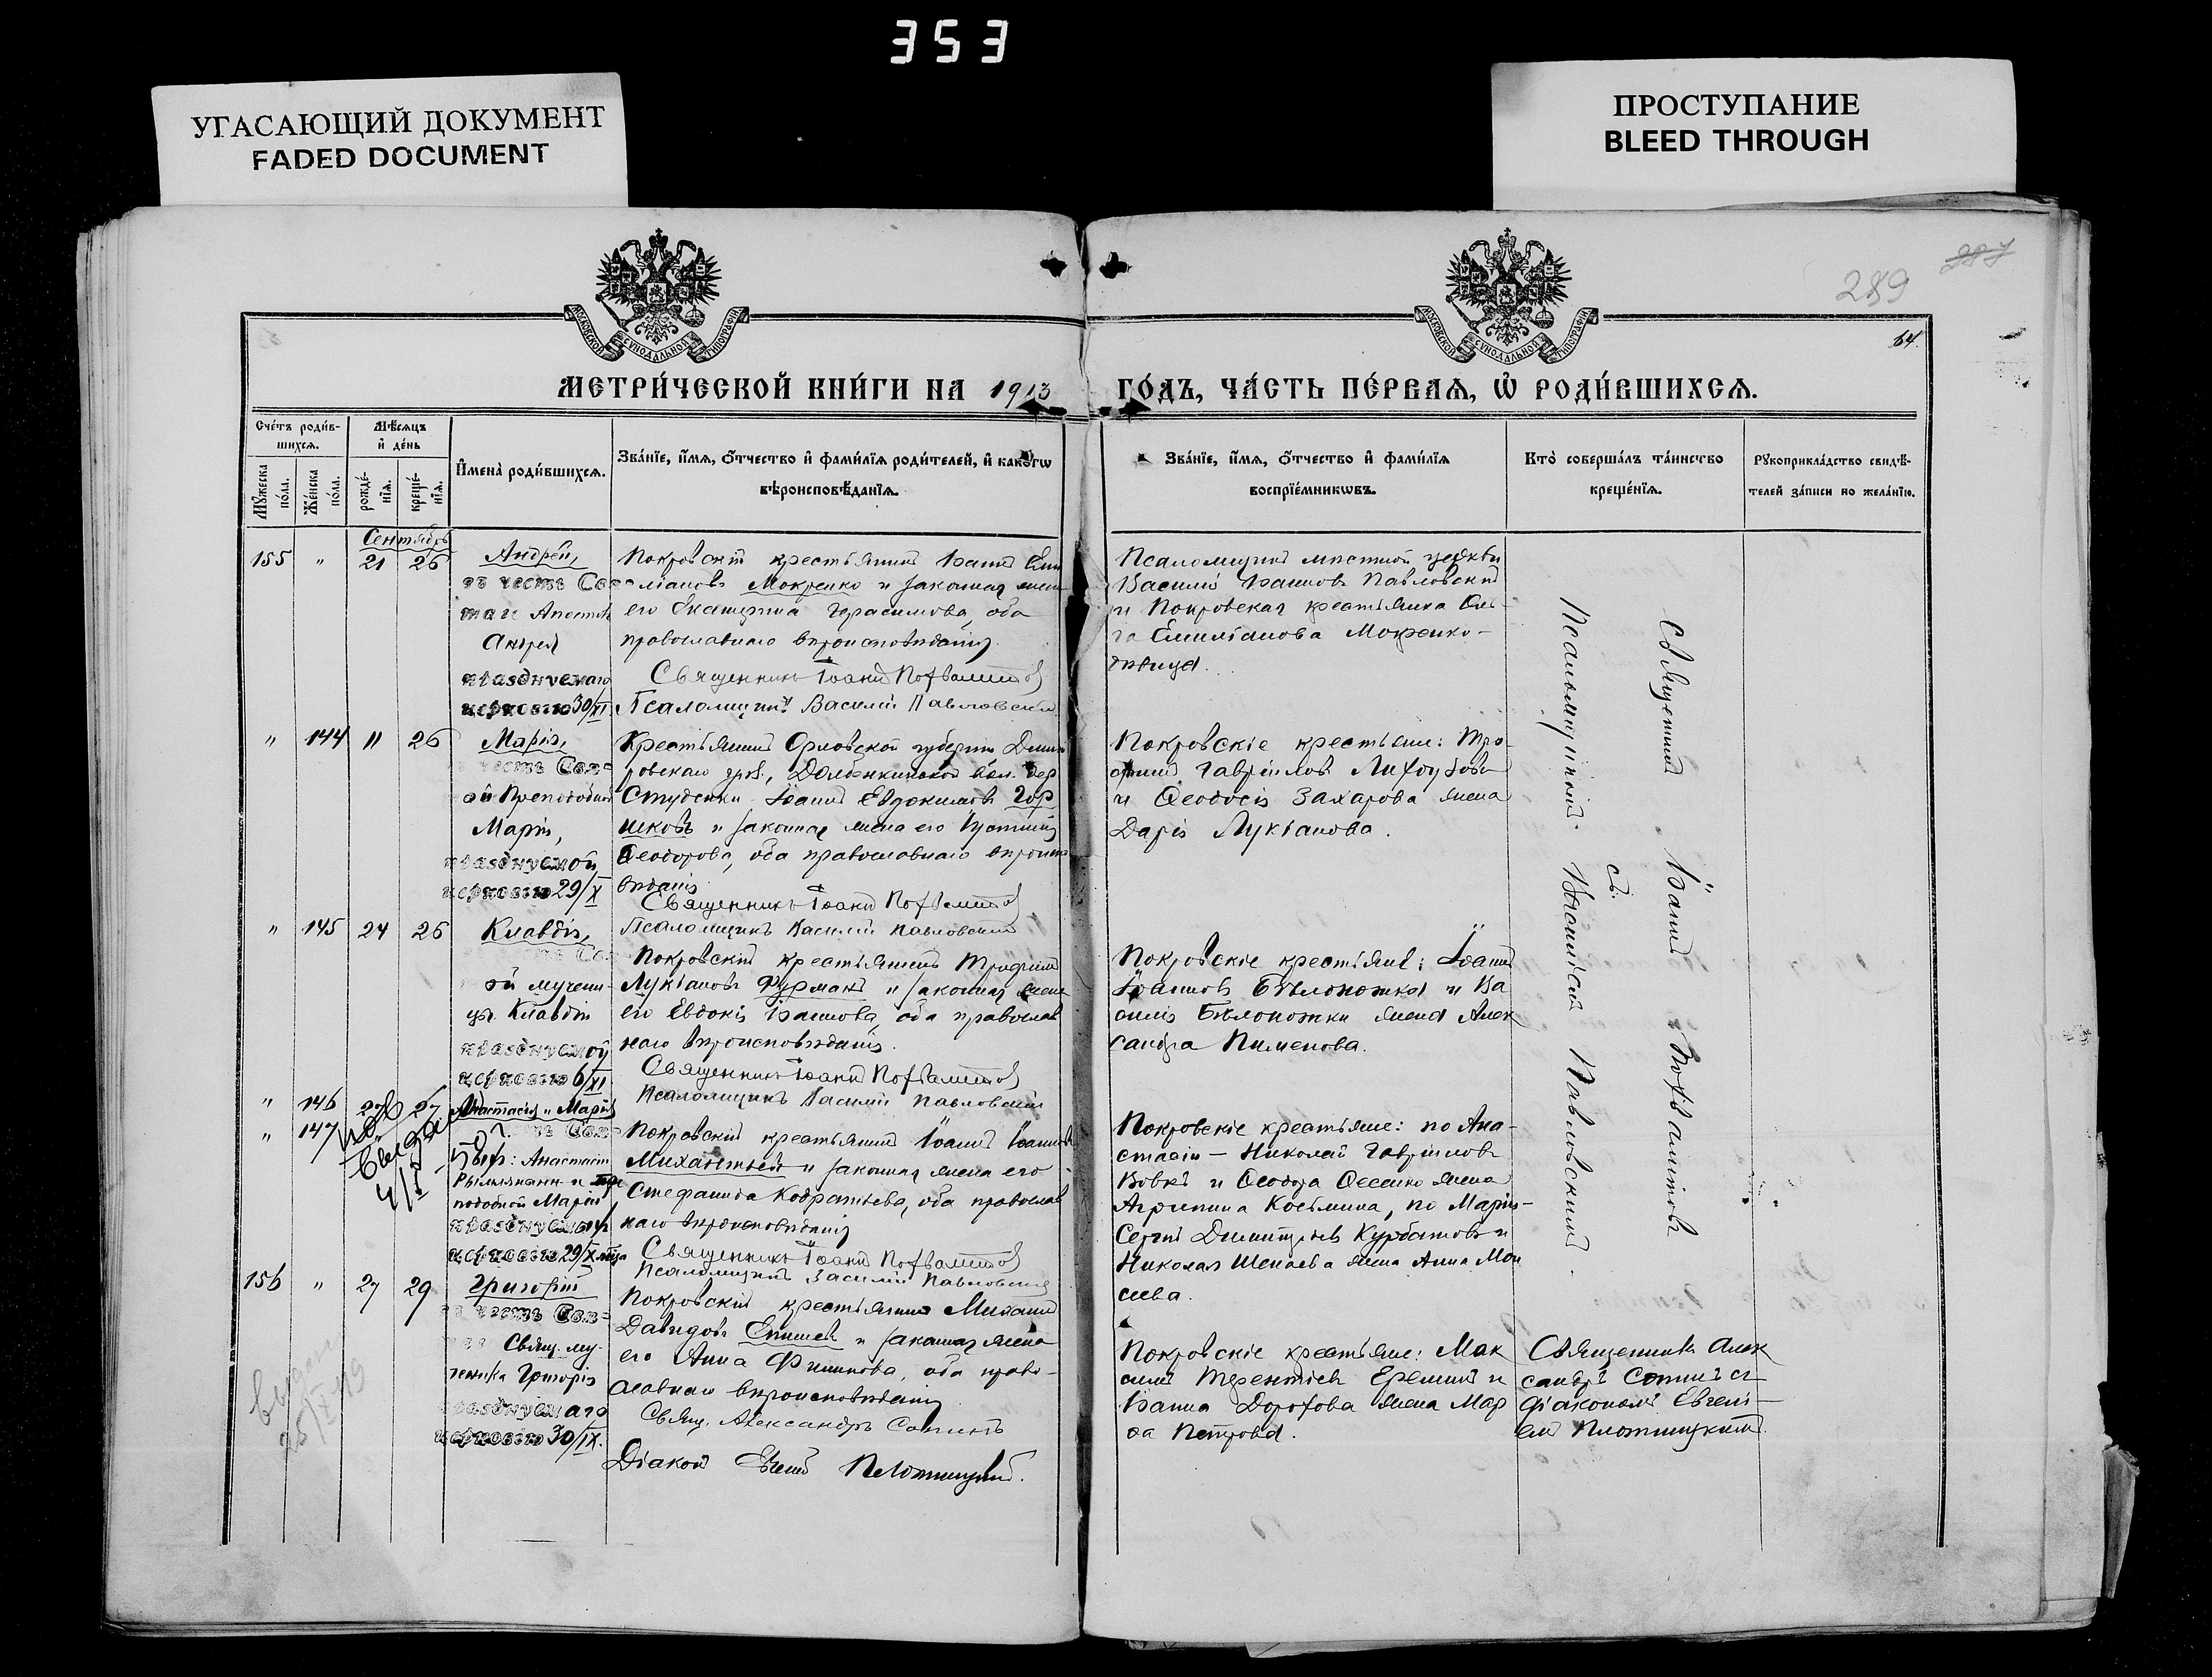 353
УГАСАЮЩИЙ ДОКУМЕНТ
FADED DOCUMENT
ПРОСТУПАНИЕ
BLEED THROUGH
289
287
64.
МОСКОВСКОЙ СѴНОДАЛЬНОЙ ТИПОГРАФІИ
МОСКОВСКОЙ СѴНОДАЛЬНОЙ ТИПОГРАФІИ
МЕТРИ́ЧЕСКОЙ КНИ́ГИ НА 1913 ГО́ДЪ, ЧА́СТЬ ПЕ́РВАѦ, Ѡ҆ РОДИ́ВШИХСѦ.
Сче́тъ роди́в-
шихсѧ.
Мѣ́сѧцъ
и҆ де́нь
Мꙋ́жеска
по́ла.
Же́нска
по́ла.
рожде́-
нїѧ.
креще́-
нїѧ.
И҆мена̀ роди́вшихсѧ.
Зва́нїе, и҆́мѧ, ѻ҆́тчество и҆ фами́лїѧ роди́телей, и҆ како́гѡ
вѣроисповѣ́данїѧ.
Зва́нїе, и҆́мѧ, ѻ҆́тчество и҆ фами́лїѧ
воспрїе́мникѡвъ.
Кто̀ соверша́лъ та́инство
креще́нїѧ.
Рꙋкоприкла́дство свидѣ́-
телей за́писи по жела́нїю.
Сентябрь
155 " 21 26
Андрей,
въ честь Свя-
таго Апостола
Андрея
празднуемаго
церковію 30/XI.
Покровскій крестьянинъ Іоаннъ Еми
ліановъ Мокренко и законная жена
его Екатерина Герасимова, оба
православнаго вѣроисповѣданія.
Священникъ Іоаннъ
Псаломщикъ Василій Павловскій
Псаломщикъ мѣстной церкви
Василій Іоанновъ Павловскій
и Покровская крестьянка Оль-
га Емиліанова Мокренко-
дѣвица.
" 144 11 26
Марія,
честь Свя-
ой Преподобной
Маріи,
празднуемой
церковію 29/X
Крестьянинъ Орловской губерніи Дмит
ровскаго уѣз., Долбенкинской вол. дер
Студенки Іоаннъ Евдокимовъ Гор
шковъ и законная жена его
Ѳеодорова, оба православнаго вѣроиспо
вѣданія
Священникъ Іоаннъ
Псаломщикъ Василій Павловскій
Покровскіе крестьяне: Тро-
фимъ Гавріиловъ
и Ѳеодосія Захарова жена
Дарія Лукіанова.
" 145 24 26
Клавдія,
Свя-
ой мучени-
цы Клавдіи
празднуемой
церковію 6/XI
Покровскій крестьянинъ Трофимъ
Лукіановъ Фурманъ и законная жена
его Евдокія Іоаннова, оба православ
наго вѣроисповѣданія.
Священникъ Іоаннъ
Псаломщикъ Василій Павловскій
Покровскіе крестьяне: Іоаннъ
Іоанновъ Бѣлоножка и Ва
силія Бѣлоножки жена Алек
сандра Пименова.
" 146 27
" 147
Анастасія и Марія
Свя-
Анастасіи
Римлянани и Пре
подобной Маріи
празднуемыхъ
церковію 29/X мѣсяца
Покровскій крестьянинъ Іоаннъ Іоанновъ
и законная жена его
Стефанида Кодратьева, оба православ
наго вѣроисповѣданія
Священникъ Іоаннъ
Псаломщикъ Василій Павловскій
Покровскіе крестьяне: по Ана-
стасіи - Николай Гавріиловъ
Вовкъ и Ѳеодора Ѳесенко жена
Агрипина Косьмина, по Маріи-
Сергій Димитріевъ Курбатовъ и
Николая Шепаева жена Анна Мои
сеева.
156 " 27 29
Григорій
честь Свя-
Свящ. му-
ченика Григорія
празднуемаго
церковію 30/IX.
Покровскій крестьянинъ Михаилъ
Давидовъ Епишев и законная жена
его Анна Филипова, оба право-
славнаго вѣроисповѣданія
Свящ. Александръ
Діаконъ Евгеній Плотницкій.
Покровскіе крестьяне: Мак
симъ Терентіевъ Ереминъ и
Іоанна Дорофеова жена Мар
ѳа Петрова.
Священникъ Алек
сандръ съ
діакономъ Евгені-
емъ Плотницкимъ.
Священникъ Іоаннъ
съ
Псаломщикомъ Василіемъ Павловскимъ.